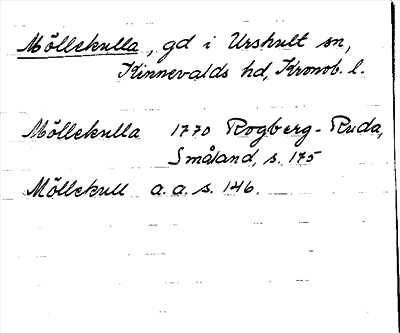 Möllekulla, gd i Urshult sn,
Kinnevalds hd, Kronob. l.
Möllekulla 1770 Rogberg-Ruda,
Småland, s. 175
Möllekull a.a.s. 146.